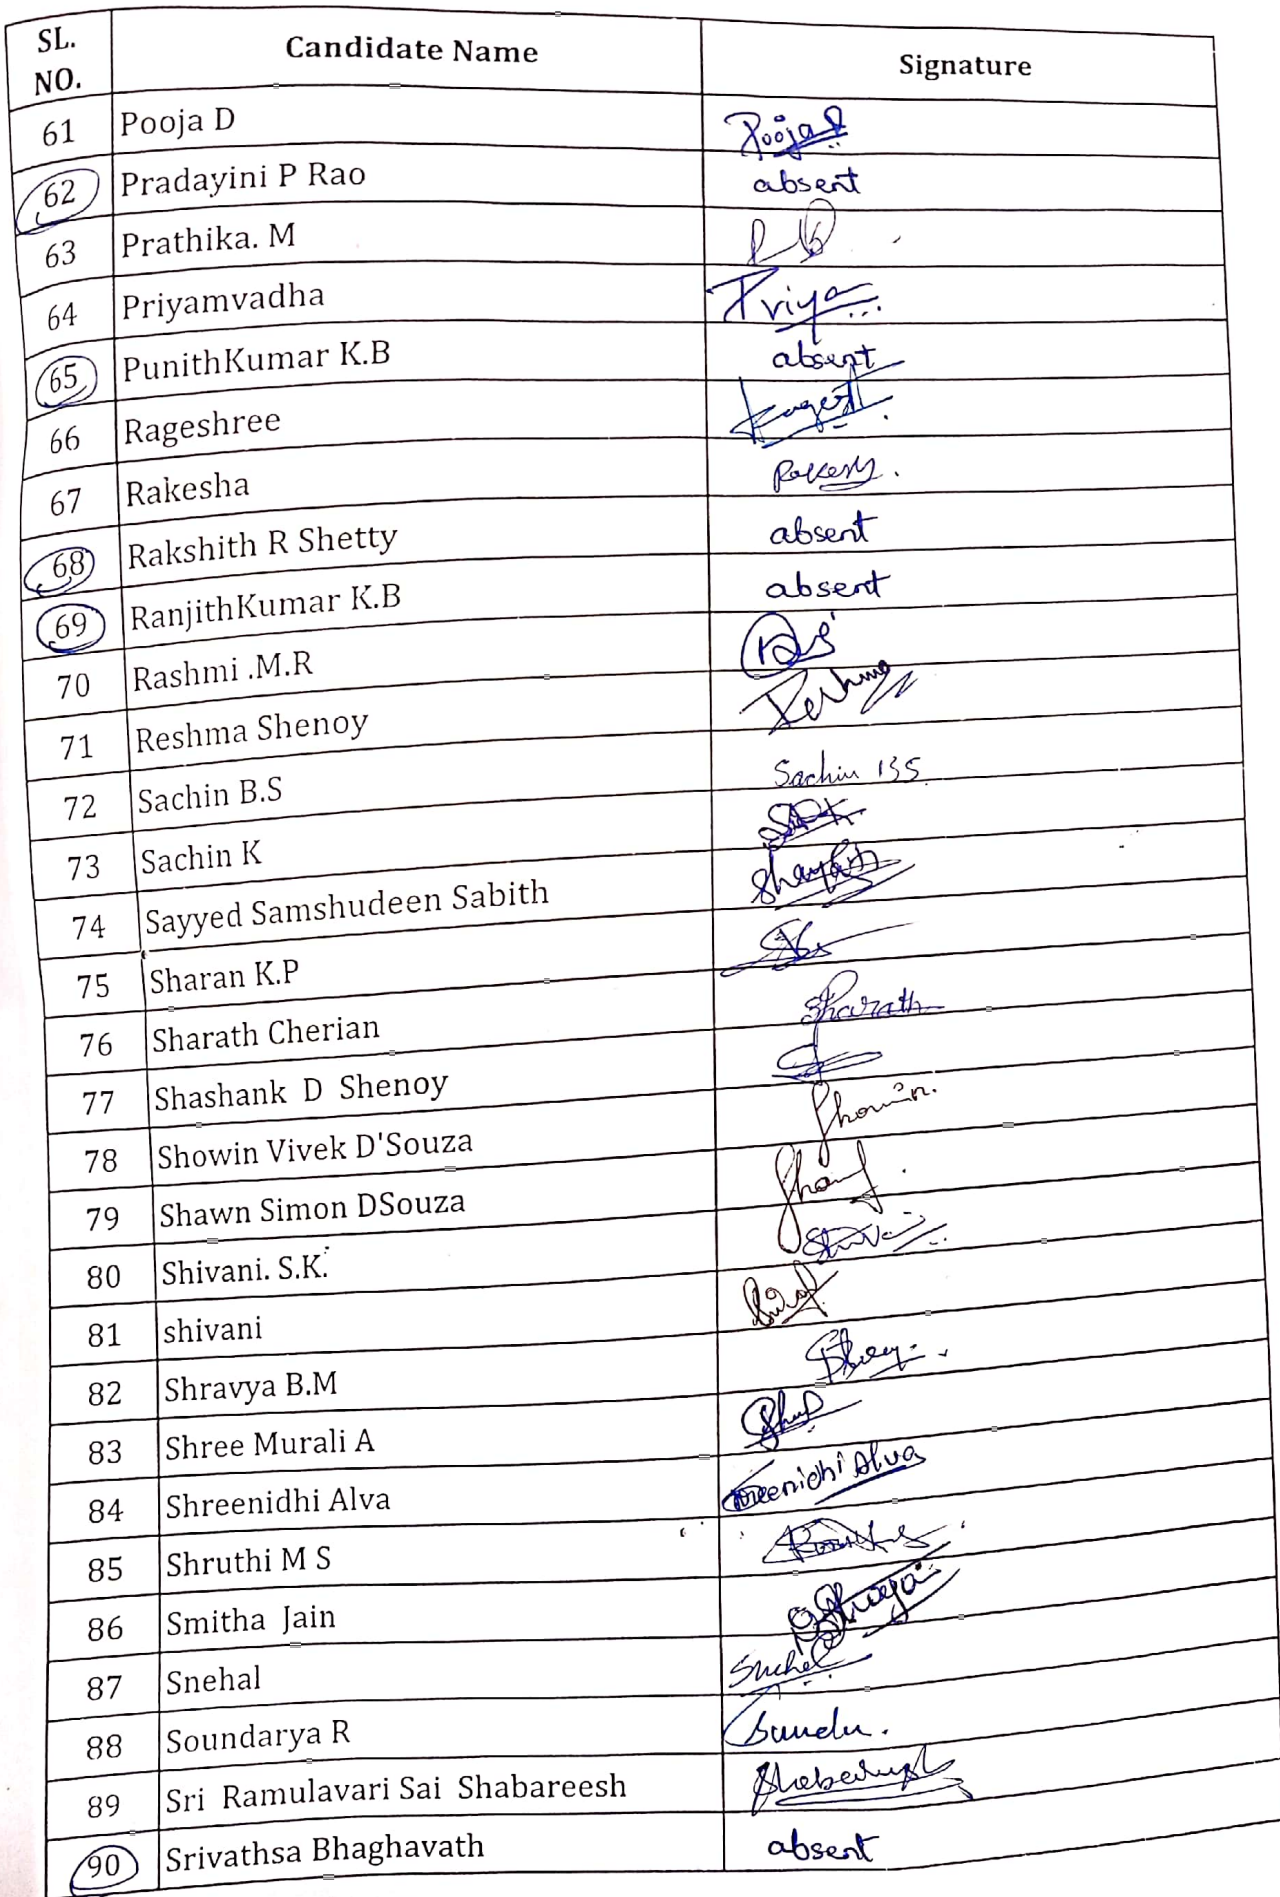 SL. NO. Candidate Name Signature
61 Pooja D Pooja
62 Pradayini P Rao absent
63 Prathika. M
64 Priyamvadha Priya
65 PunithKumar K.B absent
66 Rageshree
67 Rakesha Rakesh.
68 Rakshith R Shetty absent
69 RanjithKumar K.B absent
70 Rashmi .M.R
71 Reshma Shenoy
72 Sachin B.S Sachin BS
73 Sachin K
74 Sayyed Samshudeen Sabith
75 Sharan K.P
76 Sharath Cherian Sharath
77 Shashank D Shenoy
78 Showin Vivek D'Souza Showin.
79 Shawn Simon DSouza
80 Shivani. S.K.
81 shivani
82 Shravya B.M
83 Shree Murali A
84 Shreenidhi Alva Shreenidhi Alva
85 Shruthi M S
86 Smitha Jain
87 Snehal Snehal
88 Soundarya R
89 Sri Ramulavari Sai Shabareesh
90 Srivathsa Bhaghavath absent